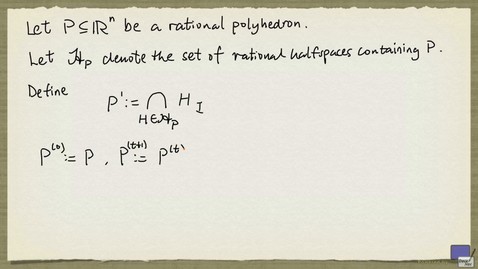 Let P ⊆ ℝⁿ be a rational polyhedron.
Let ℋ_P denote the set of rational halfspaces containing P.
Define
P' := ⋂_{H∈ℋ_P} H_I
P^{(0)} := P , P^{(t+1)} := P^{(t)}